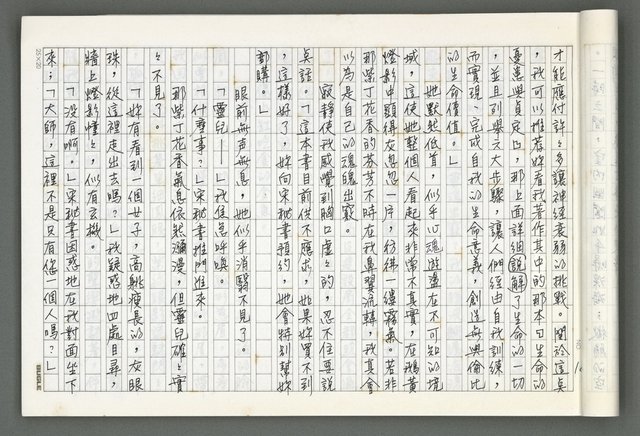 才能應付許許多多讓神經衰弱的挑戰。關於這點
，我可以推荐妳看我著作其中的那本曰生命的
憂患與貞定，那上面詳細說解了生命的一切
，並且列舉六大步驟，讓人們經由自我訓練，
而實現、完成自我的生命意義，創造無與倫比
的生命價值。」
她默然低首，似乎心魂遊盪在不可知的境
域，這使她整個人看起來非常不真實，在鵝黃
燈影中顯得灰忽忽一片，彷彿一縷霧氣。若非
那紫丁花香的芬芳不時在我鼻翼流轉，我真會
以為是自己的魂魄出竅。
寂靜使我感覺到胸口虛虛的，忍不住要說
點話。「這本書目前供不應求，如果妳買不到
，這樣好了，妳向宋秘書預約，她會特別幫妳
郵購。」
眼前無聲無息，她似乎消翳不見了。
「靈兒——」我倉急呼喚。
「什麼事？」宋秘書推門進來。
那紫丁花香氣息依然瀰漫，但靈兒確確實
實不見了。
「妳有看到一個女子，高䠷瘦長的，灰眼
珠，從這裡走出去嗎？」我疑惑地四處目尋，
牆上燈影憧憧，似有玄機。
「沒有啊。」宋秘書困惑地在我對面坐下
來：「大師，這裡不是只有您一個人嗎？」
25×20